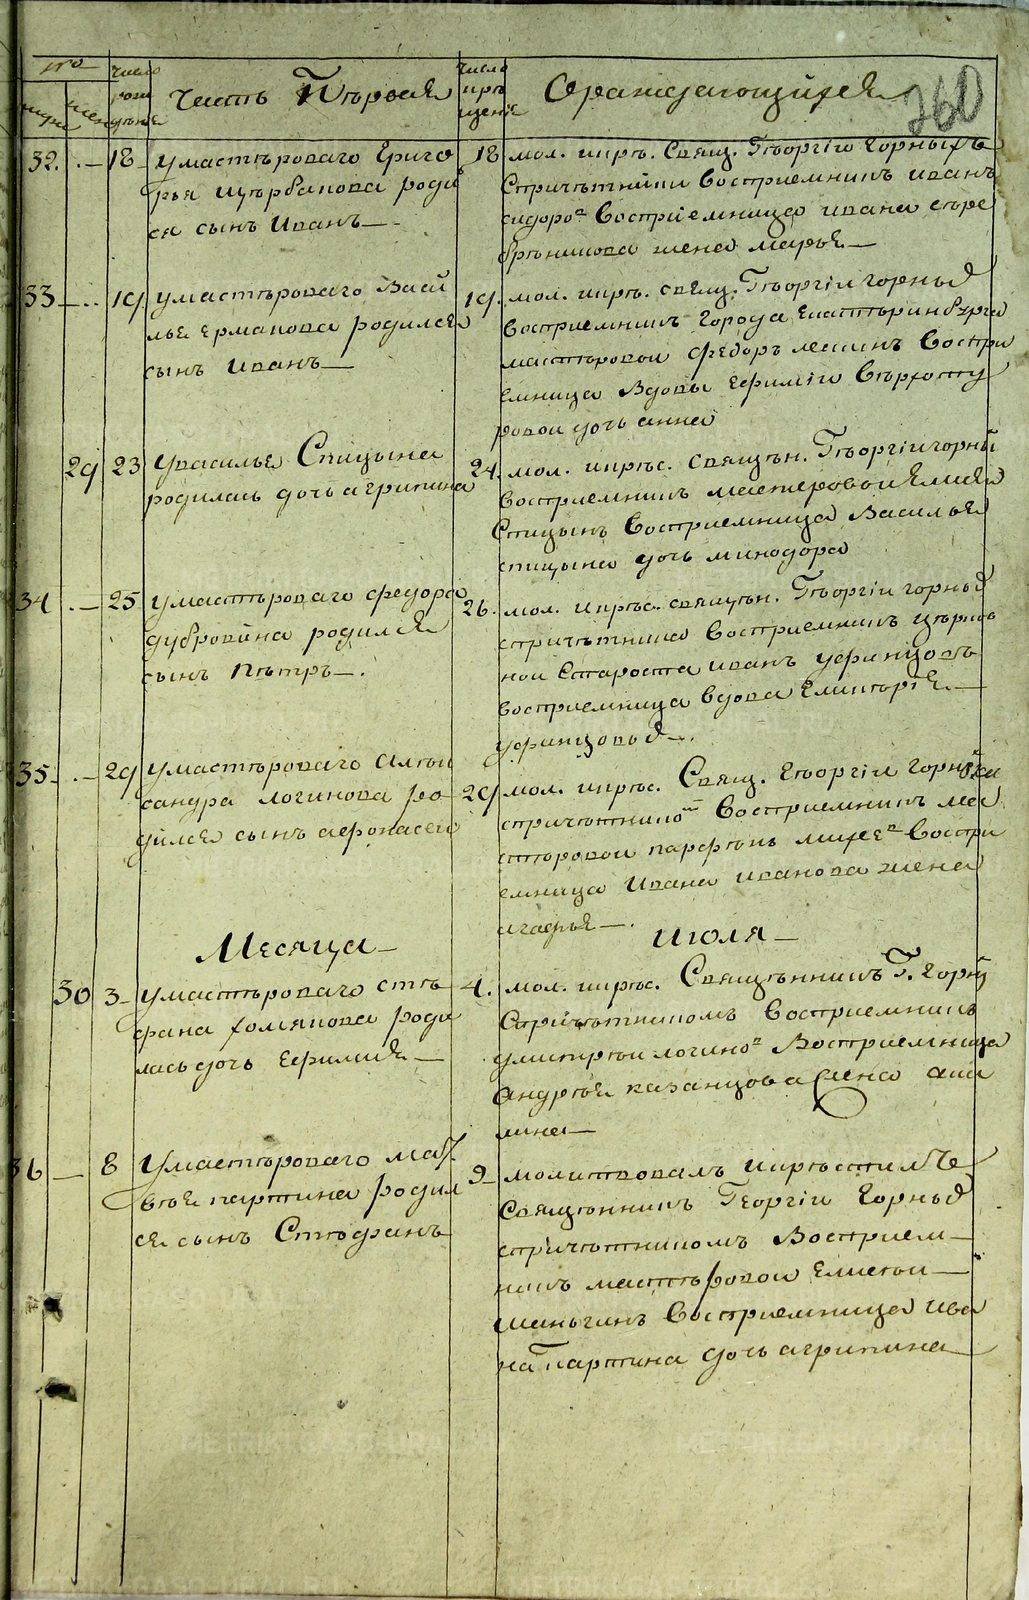 Часть Перьвая
Ораждающийхся
260
32. 18 у мастероваго Григо
рья Щербакова роди
ся сынъ Иванъ
18 мол. и крѣ. Свящ. Георгій Горныхъ
Спричетники Восприемникъ Иванъ
Сидоровъ Восприемница Ивана Сере
бреникова жена Марья
33 19 у мастероваго Васи
лья Ермакова родился
сынъ Иванъ
19. мол. и крѣ. свящ. Георгіи Горныя
Восприемникъ Города Екатеринбурга
мастеровои Федоръ Воспри
емница Вдовы Ефиміи Верхоту
ровои дочь Анна
29 23 у Василья Спицына
родилась дочь Агрипина
24. мол. и крѣс. священ. Георгіи Горный
Восприемникъ мастеровои
Спицынъ Восприемница Василья
Спицына дочь Минодора
34 25 у мастероваго Федора
Дубровина родился
сынъ Петръ
26. мол. и крѣс. священ. Георгіи Горныя
спричетника Восприемникъ церков
нои Староста Иванъ Уфинцовъ
Восприемница вдова
Уфинцовыя
35 29 у мастероваго Алек
сандра Логинова ро
дился сынъ Афонасеи
29 мол. и крѣс. Свящ. Георгіи Горныхъ
спричетникомъ Восприемникъ ма
стеровои Парфенъ Восприе
емница Ивана Иванова жена
Агафья
Месяца Июля
30 3 у мастероваго Сте
фана Хомякова роди
лась дочь Ефимия
4. мол. и крѣс. Священникъ Г. Горныя
Спричетникомъ Восприемникъ
Дмитреи Логиновъ Восприемница
Андрея Казанцова жена Аки
лина
36 8 у мастероваго Мат
вея Партина родил
ся сынъ Стефанъ
9 молитвовалъ и крестилъ
Священникъ Георгіи Горныя
спричетникомъ Восприем
никъ мастеровои Елисеи
Маньгинъ Восприемница Ива
на Партина дочь Агрипина